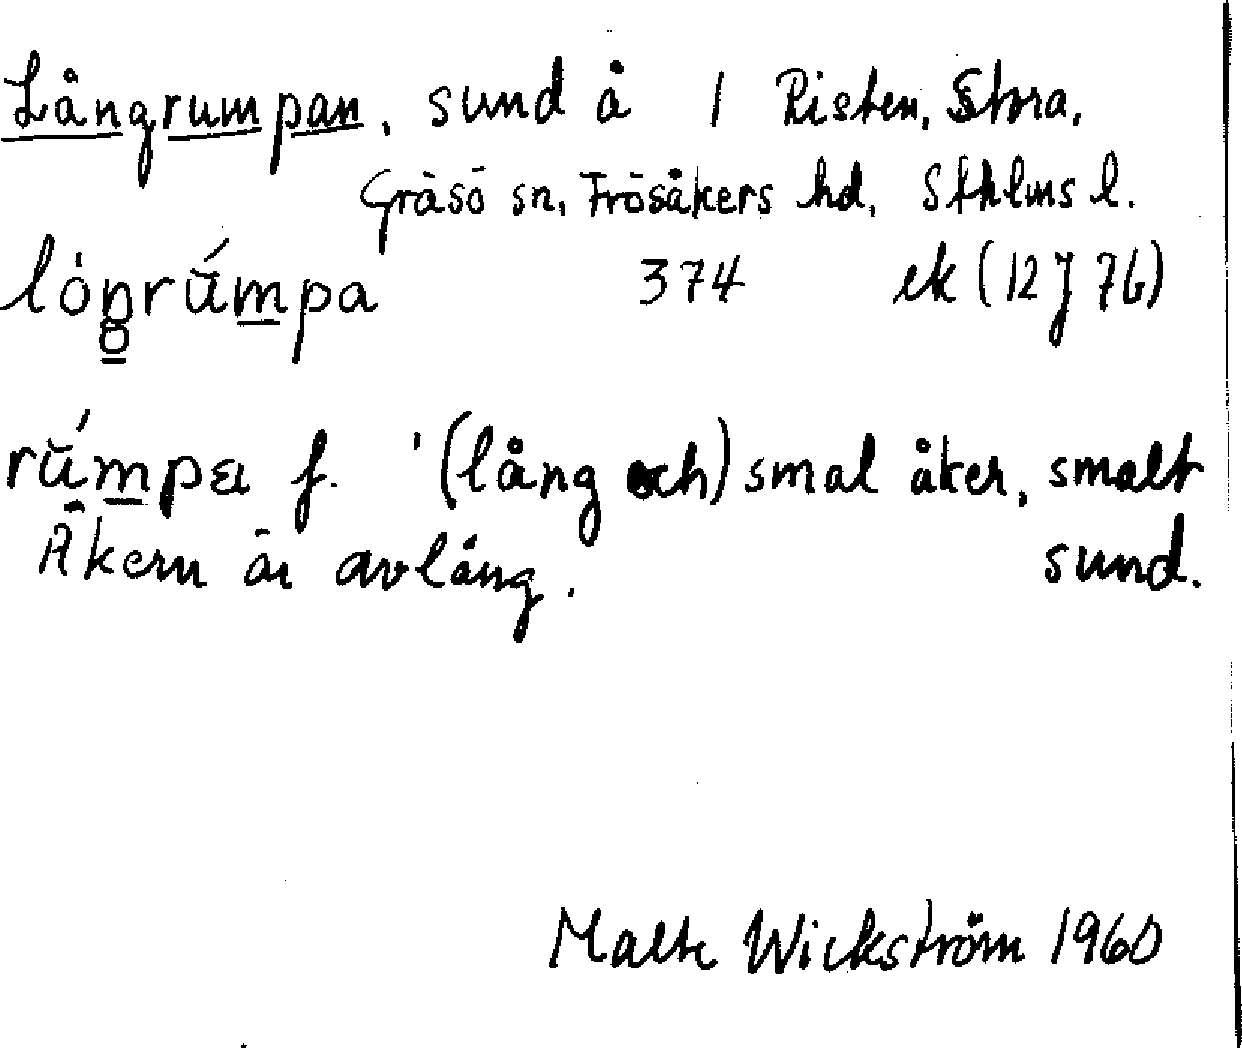 Långrumpan, sund å 1 Risten, Stora,
Gräsö sn, Frösåkers hd, Sthlms l.
lóŋrŭ́mpa 374 ek (12 J 76)
rŭ́mpa f. '(lång och) smal åker, smalt
Åkern är avlång. sund.
Malte Wickström 1960